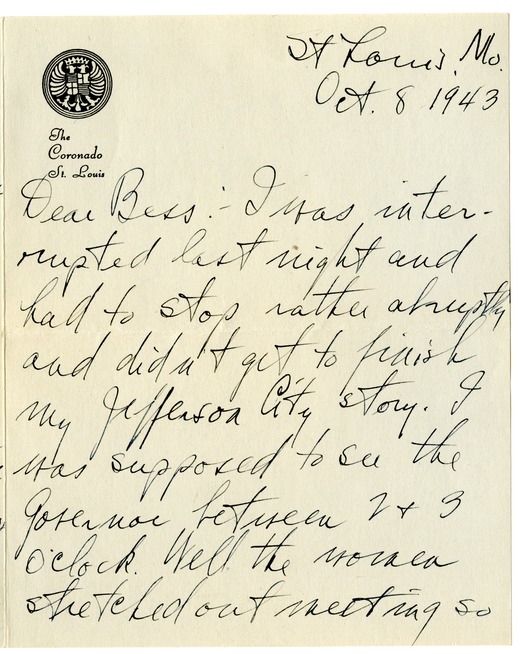 St Louis, Mo.
Oct. 8 1943
The
Coronado
St. Louis
Dear Bess:- I was inter-
rupted last night and
had to stop rather abruptly
and didn't get to finish
my Jefferson City story. I
was supposed to see the
Governor between 2 & 3
o'clock. Well the women
stretched out meeting so